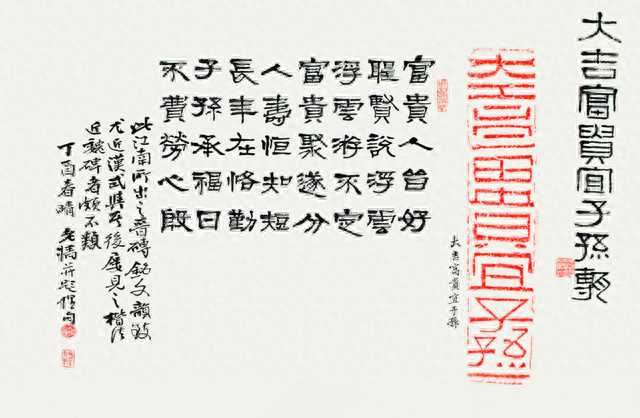 大吉富貴宜子孫甎
大吉富貴宜子孫
大吉富貴宜子孫
富貴人皆好
聖賢說浮雲
浮雲游不定
富貴聚遂分
人壽恒知短
長年在恪勤
子孫承福日
不費勞心殷
此江南所出之晉磚銘文韻致
尤近漢式與其後屢見之楷法
近魏碑者頗不類
丁酉春晴 并題